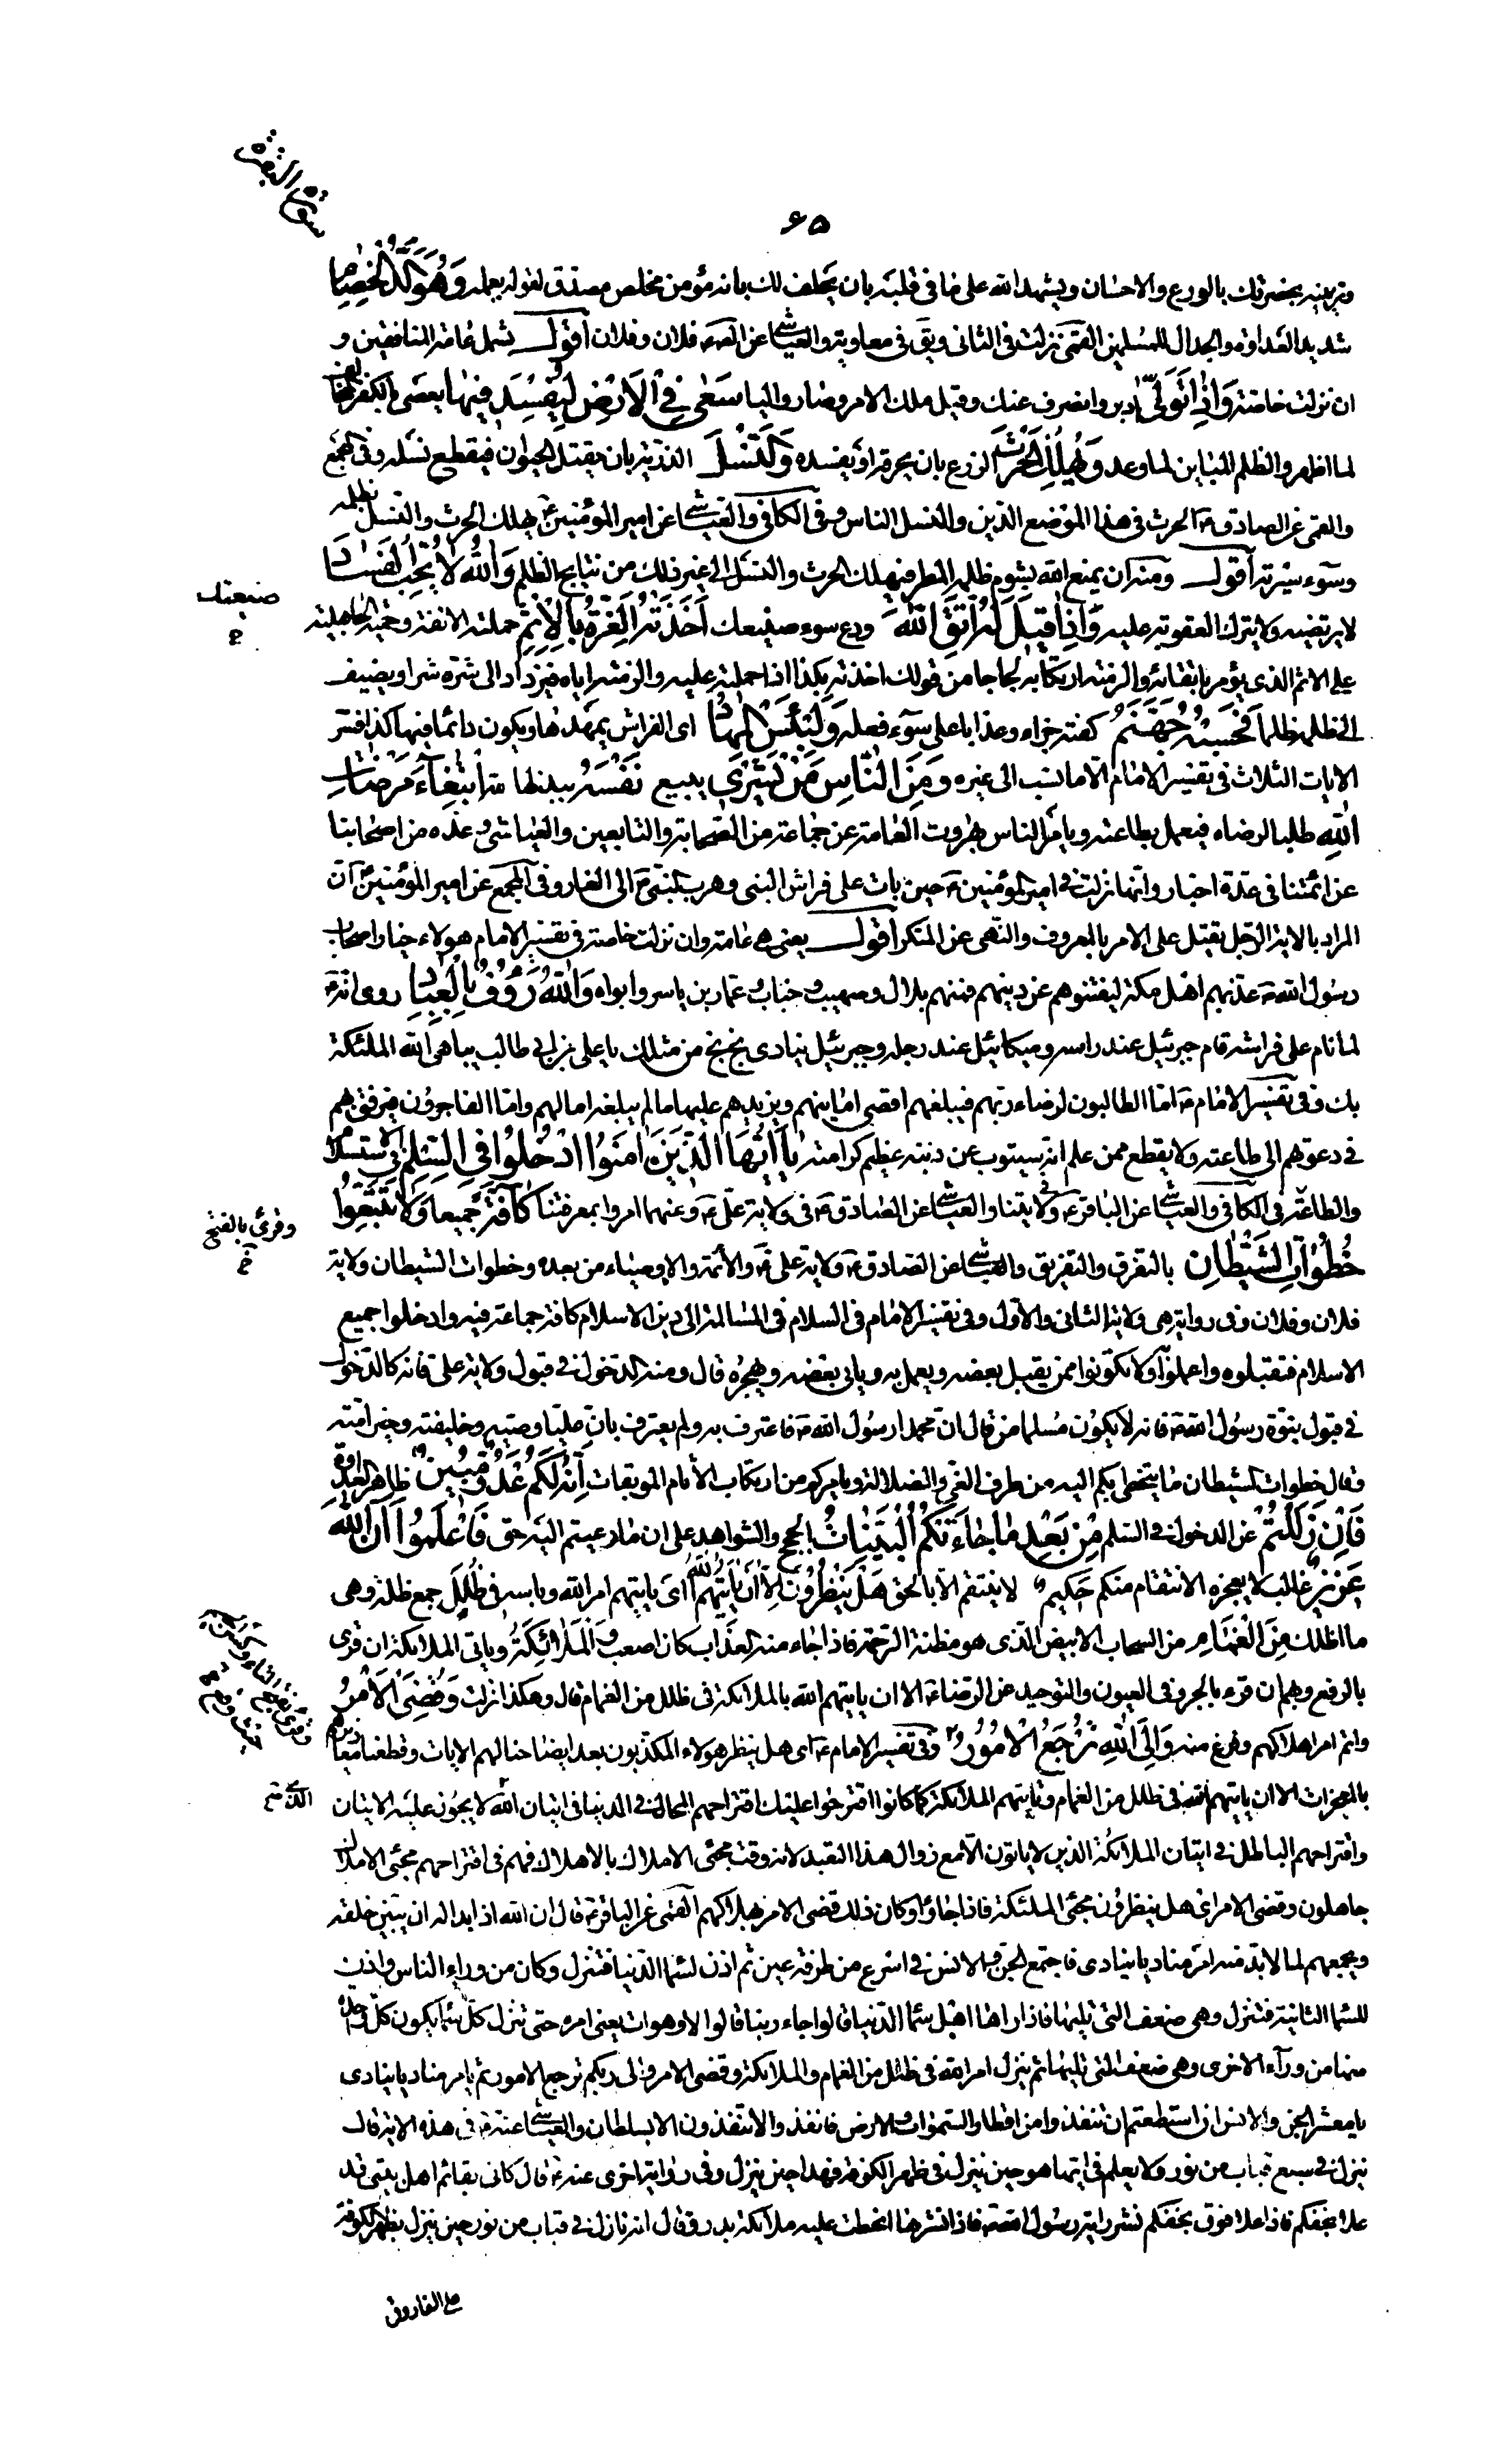 سورة البقرة
٦٥
وتزيينه بحضرتك بالورع والاحسان ويشهد الله على ما في قلبه بان يحلف لك بانه مؤمن مخلص مصدق لقوله بعمله وَهُوَ أَلَدُّ الْخِصَامِ
شديد العداوة والجدال للمسلمين القمي نزلت في الثاني ويق في معاوية والعياشي عن الص فلان وفلان أقول يشمل عامة المنافقين و
ان نزلت خاصة وَإِذَا تَوَلَّى ادبر وانصرف عنك وقيل ملك الامر وصار واليا سَعَى فِي الْأَرْضِ لِيُفْسِدَ فِيهَا يعصي بالكفر المخالف
لما اظهر والظلم المباين لما وعد وَيُهْلِكَ الْحَرْثَ الزرع بان يحرقه او يفسده وَالنَّسْلَ الذرية بان يقتل الحيوان فيقطع نسله وفي المجمع
والقمي عن الصادق ع الحرث في هذا الموضع الدين والنسل الناس وفي الكافي والعياشي عن امير المؤمنين ع يهلك الحرث والنسل بظلمه
وسوء سيرته أقول ومنه ان يمنع الله بشوم ظلمه المطر فيهلك الحرث والنسل الى غير ذلك من نتايج الظلم وَاللَّهُ لَا يُحِبُّ الْفَسَادَ
لا يرتضيه ولا يترك العقوبة عليه وَإِذَا قِيلَ لَهُ اتَّقِ اللَّهَ ودع سوء صنيعك أَخَذَتْهُ الْعِزَّةُ بِالْإِثْمِ حملته الانفة وحمية الجاهلية
صنيعتك
خ
على الاثم الذي يؤمر باتقائه والزمته ارتكابه لجاجا من قولك اخذته بكذا اذا حملته عليه والزمته اياه فيزداد الى شره شرا ويضيف
الى ظلمه ظلما فَحَسْبُهُ جَهَنَّمُ كفته جزاء وعذابا على سوء فعله وَلَبِئْسَ الْمِهَادُ اى الفراش يمهدها ويكون دائما فيها كذا فسر
الايات الثلاث في تفسير الامام الا ما نسب الى غيره وَمِنَ النَّاسِ مَنْ يَشْرِي يبيع نَفْسَهُ ببذلها لله ابْتِغَاءَ مَرْضَاتِ
اللَّهِ طلبا لرضاه فيعمل بطاعته ويامر الناس بها روت العامة عن جماعة من الصحابة والتابعين والعياشي وعده من اصحابنا
عن ائمتنا في عدة اخبار وانها نزلت في امير المؤمنين ع حين بات على فراش النبي وهرب النبي ص الى الغار وفي المجمع عن امير المؤمنين ع ان
المراد بالاية الرجل يقتل على الامر بالمعروف والنهي عن المنكر أقول يعني هي عامة وان نزلت خاصة في تفسير الامام هولاء خيار اصحاب
رسول الله ص عذبهم اهل مكة ليفتنوهم عن دينهم فمنهم بلال وصهيب وخباب وعمار بن ياسر وابواه وَاللَّهُ رَؤُوفٌ بِالْعِبَادِ روى انه ع
لما نام على فراشه قام جبرئيل عند راسه وميكائيل عند رجله وجبرئيل ينادى بخ بخ من مثلك يا على بن ابى طالب يباهى الله الملئكة
بك وفي تفسير الامام ع اما الطالبون لرضاء ربهم فيبلغهم اقصى امانيهم ويزيدهم عليها ما لم يبلغه امالهم واما الفاجرون فيرفق بهم
في دعوتهم الى طاعته ولا يقطع ممن علم انه سيتوب عن ذنبه عظيم كرامته يَا أَيُّهَا الَّذِينَ آمَنُوا ادْخُلُوا فِي السِّلْمِ في الاستسلام
والطاعة في الكافي والعياشي عن الباقر ع في ولايتنا والعياشي عن الصادق ع في ولاية علي ع وعنهما امروا بمعرفتنا كَافَّةً جميعا وَلَا تَتَّبِعُوا
وقرئ بالفتح
خ
خُطُوَاتِ الشَّيْطَانِ بالتفرق والتفريق والعياشي عن الصادق ع ولاية علي ع والائمة والاوصياء من بعده وخطوات الشيطان ولاية
فلان وفلان وفي رواية هي ولاية الثاني والاول وفي تفسير الامام في السلام في المسالمة الى دين الاسلام كافة جماعة فيه وادخلوا جميع
الاسلام فتقبلوه واعملوا ولا تكونوا ممن يقبل بعضه ويعمل به ويابى بعضه ويهجره قال ومنه الدخول في قبول ولاية علي فانه كالدخول
في قبول نبوة رسول الله ص فانه لا يكون مسلما من قال ان محمدا رسول الله ص فاعترف به ولم يعترف بان عليا وصيه وخليفته وخير امته
وقال خطوات الشيطان ما يتخطى بكم اليه من طرف الغي والضلالة ويامركم من ارتكاب الاثام الموبقات إِنَّهُ لَكُمْ عَدُوٌّ مُبِينٌ ظاهر العداوة
فَإِنْ زَلَلْتُمْ عن الدخول في السلم مِنْ بَعْدِ مَا جَاءَتْكُمُ الْبَيِّنَاتُ الحجج والشواهد على ان ما دعيتم اليه حق فَاعْلَمُوا أَنَّ اللَّهَ
عَزِيزٌ غالب لا يعجزه الانتقام منكم حَكِيمٌ لا ينتقم الا بالحق هَلْ يَنْظُرُونَ إِلَّا أَنْ يَأْتِيَهُمُ اللَّهُ اى ياتيهم امر الله وباسه فِي ظُلَلٍ جمع ظلة وهى
ما اظلك مِنَ الْغَمَامِ من السحاب الابيض الذى هو مظنة الرحمة فاذا جاء منه العذاب كان اصعب وَالْمَلَائِكَةُ وياتى الملائكة ان قرئ
بالرفع وبهم ان قرء بالجر وفي العيون والتوحيد عن الرضا ع الا ان ياتيهم الله بالملائكة في ظلل من الغمام قال وهكذا نزلت وَقُضِيَ الْأَمْرُ
واتم امر اهلاكهم وفرغ منه وَإِلَى اللَّهِ تُرْجَعُ الْأُمُورُ وفي تفسير الامام ع اى هل ينظر هولاء المكذبون بعد ايضاحنا لهم الايات وقطعنا معاذيرهم
بالمعجزات الا ان ياتيهم الله في ظلل من الغمام وتاتيهم الملائكة كما كانوا اقترحوا عليك اقتراحهم المحال في الدنيا في اتيان الله لا يجوز عليه الاتيان
واقتراحهم الباطل في اتيان الملائكة الذين لا ياتون الا مع زوال هذا التعبد لانه وقت مجئ الاملاك بالاهلاك فهم في اقتراحهم مجئ الاملاك
جاهلون وقضى الامر اى هل ينظرون مجئ الملئكة فاذا جاؤا وكان ذلك قضى الامر بهلاكهم القمي عن الباقر ع قال ان الله اذا بدا له ان يبين خلقه
ويجمعهم لما لا بد منه امر مناديا ينادى فاجتمع الجن والانس في اسرع من طرفة عين ثم اذن لسماء الدنيا فتنزل وكان من وراء الناس واذن
للسماء الثانية فتنزل وهى ضعف التى تليها فاذا راها اهل سماء الدنيا قالوا جاء ربنا قالوا لا وهو ات يعنى امره حتى تنزل كل سماء يكون كل واحدة
منها من وراء الاخرى وهى ضعف التى تليها ثم ينزل امر الله في ظلل من الغمام والملائكة وقضى الامر والى ربكم ترجع الامور ثم يامر مناديا ينادى
يا معشر الجن والانس ان استطعتم ان تنفذوا من اقطار السموات والارض فانفذوا لا تنفذون الا بسلطان والعياشي عنه ع في هذه الاية قال
ينزل في سبع قباب من نور ولا يعلم في ايتها هو حين ينزل في ظهر الكوفة فهذا حين ينزل وفي رواية اخرى عنه ع قال كانى بقائم اهل بيتى قد
علا نجفكم فاذا علا فوق نجفكم نشر راية رسول الله ص فاذا نشرها انحطت عليه ملائكة بدر وقال انه نازل في قباب من نور حين ينزل بظهر الكوفة
على الفاروق